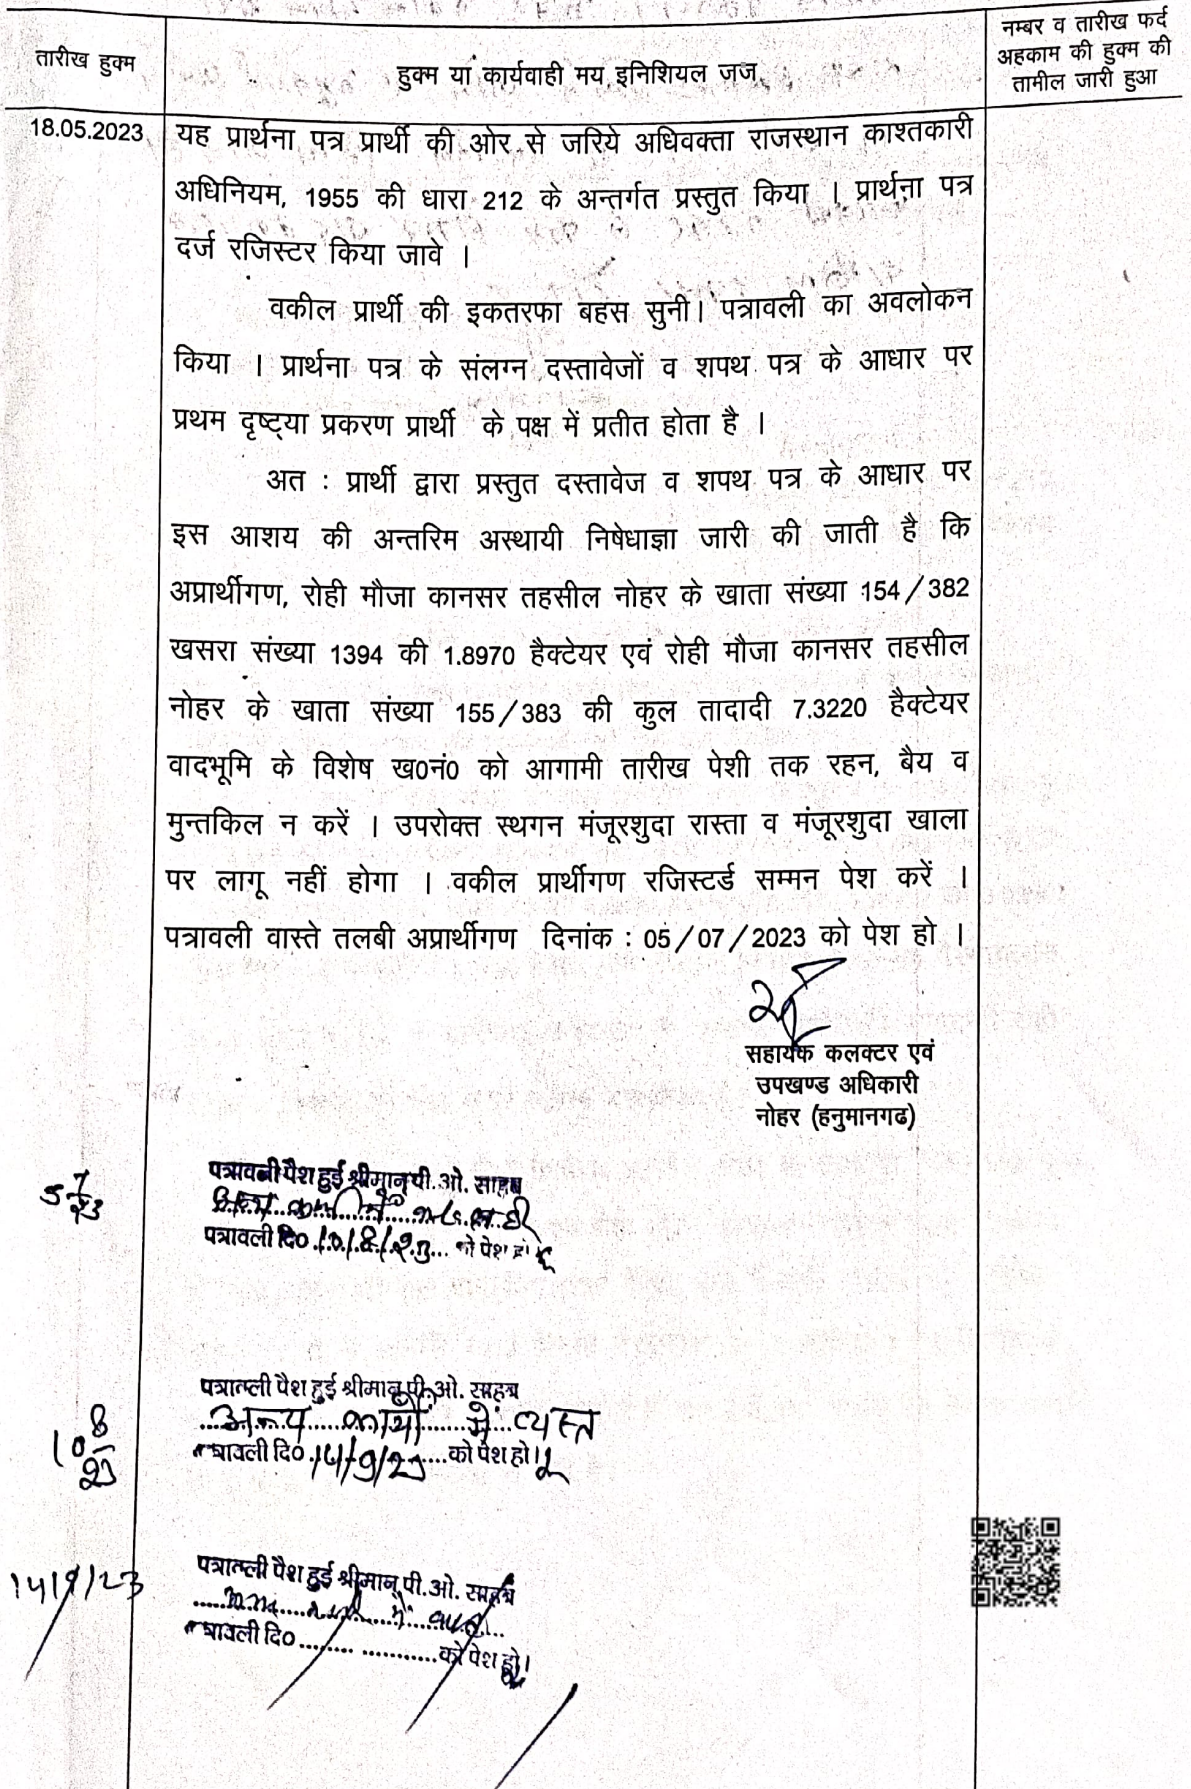 तारीख हुक्म
हुक्म या कार्यवाही मय इनिशियल जज
नम्बर व तारीख फर्द
अहकाम की हुक्म की
तामील जारी हुआ
18.05.2023
यह प्रार्थना पत्र प्रार्थी की ओर से जरिये अधिवक्ता राजस्थान काश्तकारी
अधिनियम, 1955 की धारा 212 के अन्तर्गत प्रस्तुत किया । प्रार्थना पत्र
दर्ज रजिस्टर किया जावे ।
वकील प्रार्थी की इकतरफा बहस सुनी। पत्रावली का अवलोकन
किया । प्रार्थना पत्र के संलग्न दस्तावेजों व शपथ पत्र के आधार पर
प्रथम दृष्ट्या प्रकरण प्रार्थी के पक्ष में प्रतीत होता है ।
अत : प्रार्थी द्वारा प्रस्तुत दस्तावेज व शपथ पत्र के आधार पर
इस आशय की अन्तरिम अस्थायी निषेधाज्ञा जारी की जाती है कि
अप्रार्थीगण, रोही मौजा कानसर तहसील नोहर के खाता संख्या 154/382
खसरा संख्या 1394 की 1.8970 हैक्टेयर एवं रोही मौजा कानसर तहसील
नोहर के खाता संख्या 155/383 की कुल तादादी 7.3220 हैक्टेयर
वादभूमि के विशेष ख0नं0 को आगामी तारीख पेशी तक रहन, बैय व
मुन्तकिल न करें । उपरोक्त स्थगन मंजूरशुदा रास्ता व मंजूरशुदा खाला
पर लागू नहीं होगा । वकील प्रार्थीगण रजिस्टर्ड सम्मन पेश करें ।
पत्रावली वास्ते तलबी अप्रार्थीगण दिनांक : 05/07/2023 को पेश हो ।
सहायक कलक्टर एवं
उपखण्ड अधिकारी
नोहर (हनुमानगढ)
5 7/23
पत्रावली पैश हुई श्रीमान् पी. ओ. साहब
पत्रावली दि० 10/8/23 को पेश हो
10 8/23
पत्रावली पैश हुई श्रीमान् पी. ओ. साहब
अन्य कार्यों में व्यस्त
पत्रावली दि० 14/9/23 को पेश हो।
14/9/23
पत्रावली पैश हुई श्रीमान् पी. ओ. साहब
में
पत्रावली दि० ........ ........... को पेश हो।